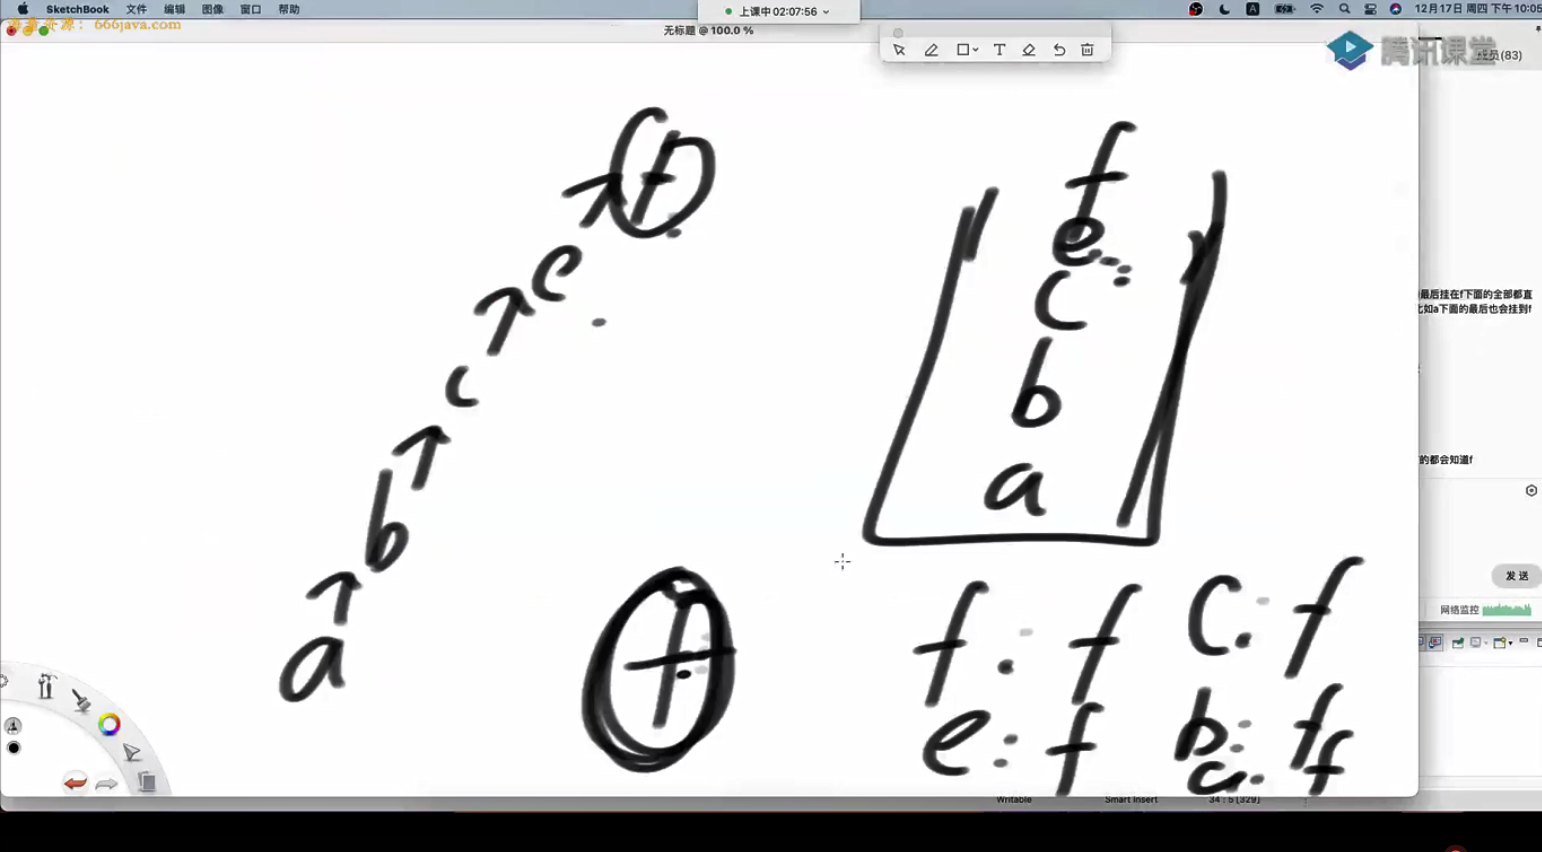 SketchBook 文件 编辑 图像 窗口 帮助
上课中 02:07:56
12月17日 周四 下午 10:05
666java.com
无标题 @ 100.0 %
腾讯课堂
成员(83)
f
f
e
e
c
c
b
b
a
a
最后挂在f下面的全部都直
比如a下面的最后也会挂到f
的都会知道f
发 送
网络监控
f
f : f
c : f
e : f
b : f
a : f
Writable Smart Insert 34 : 5 [329]